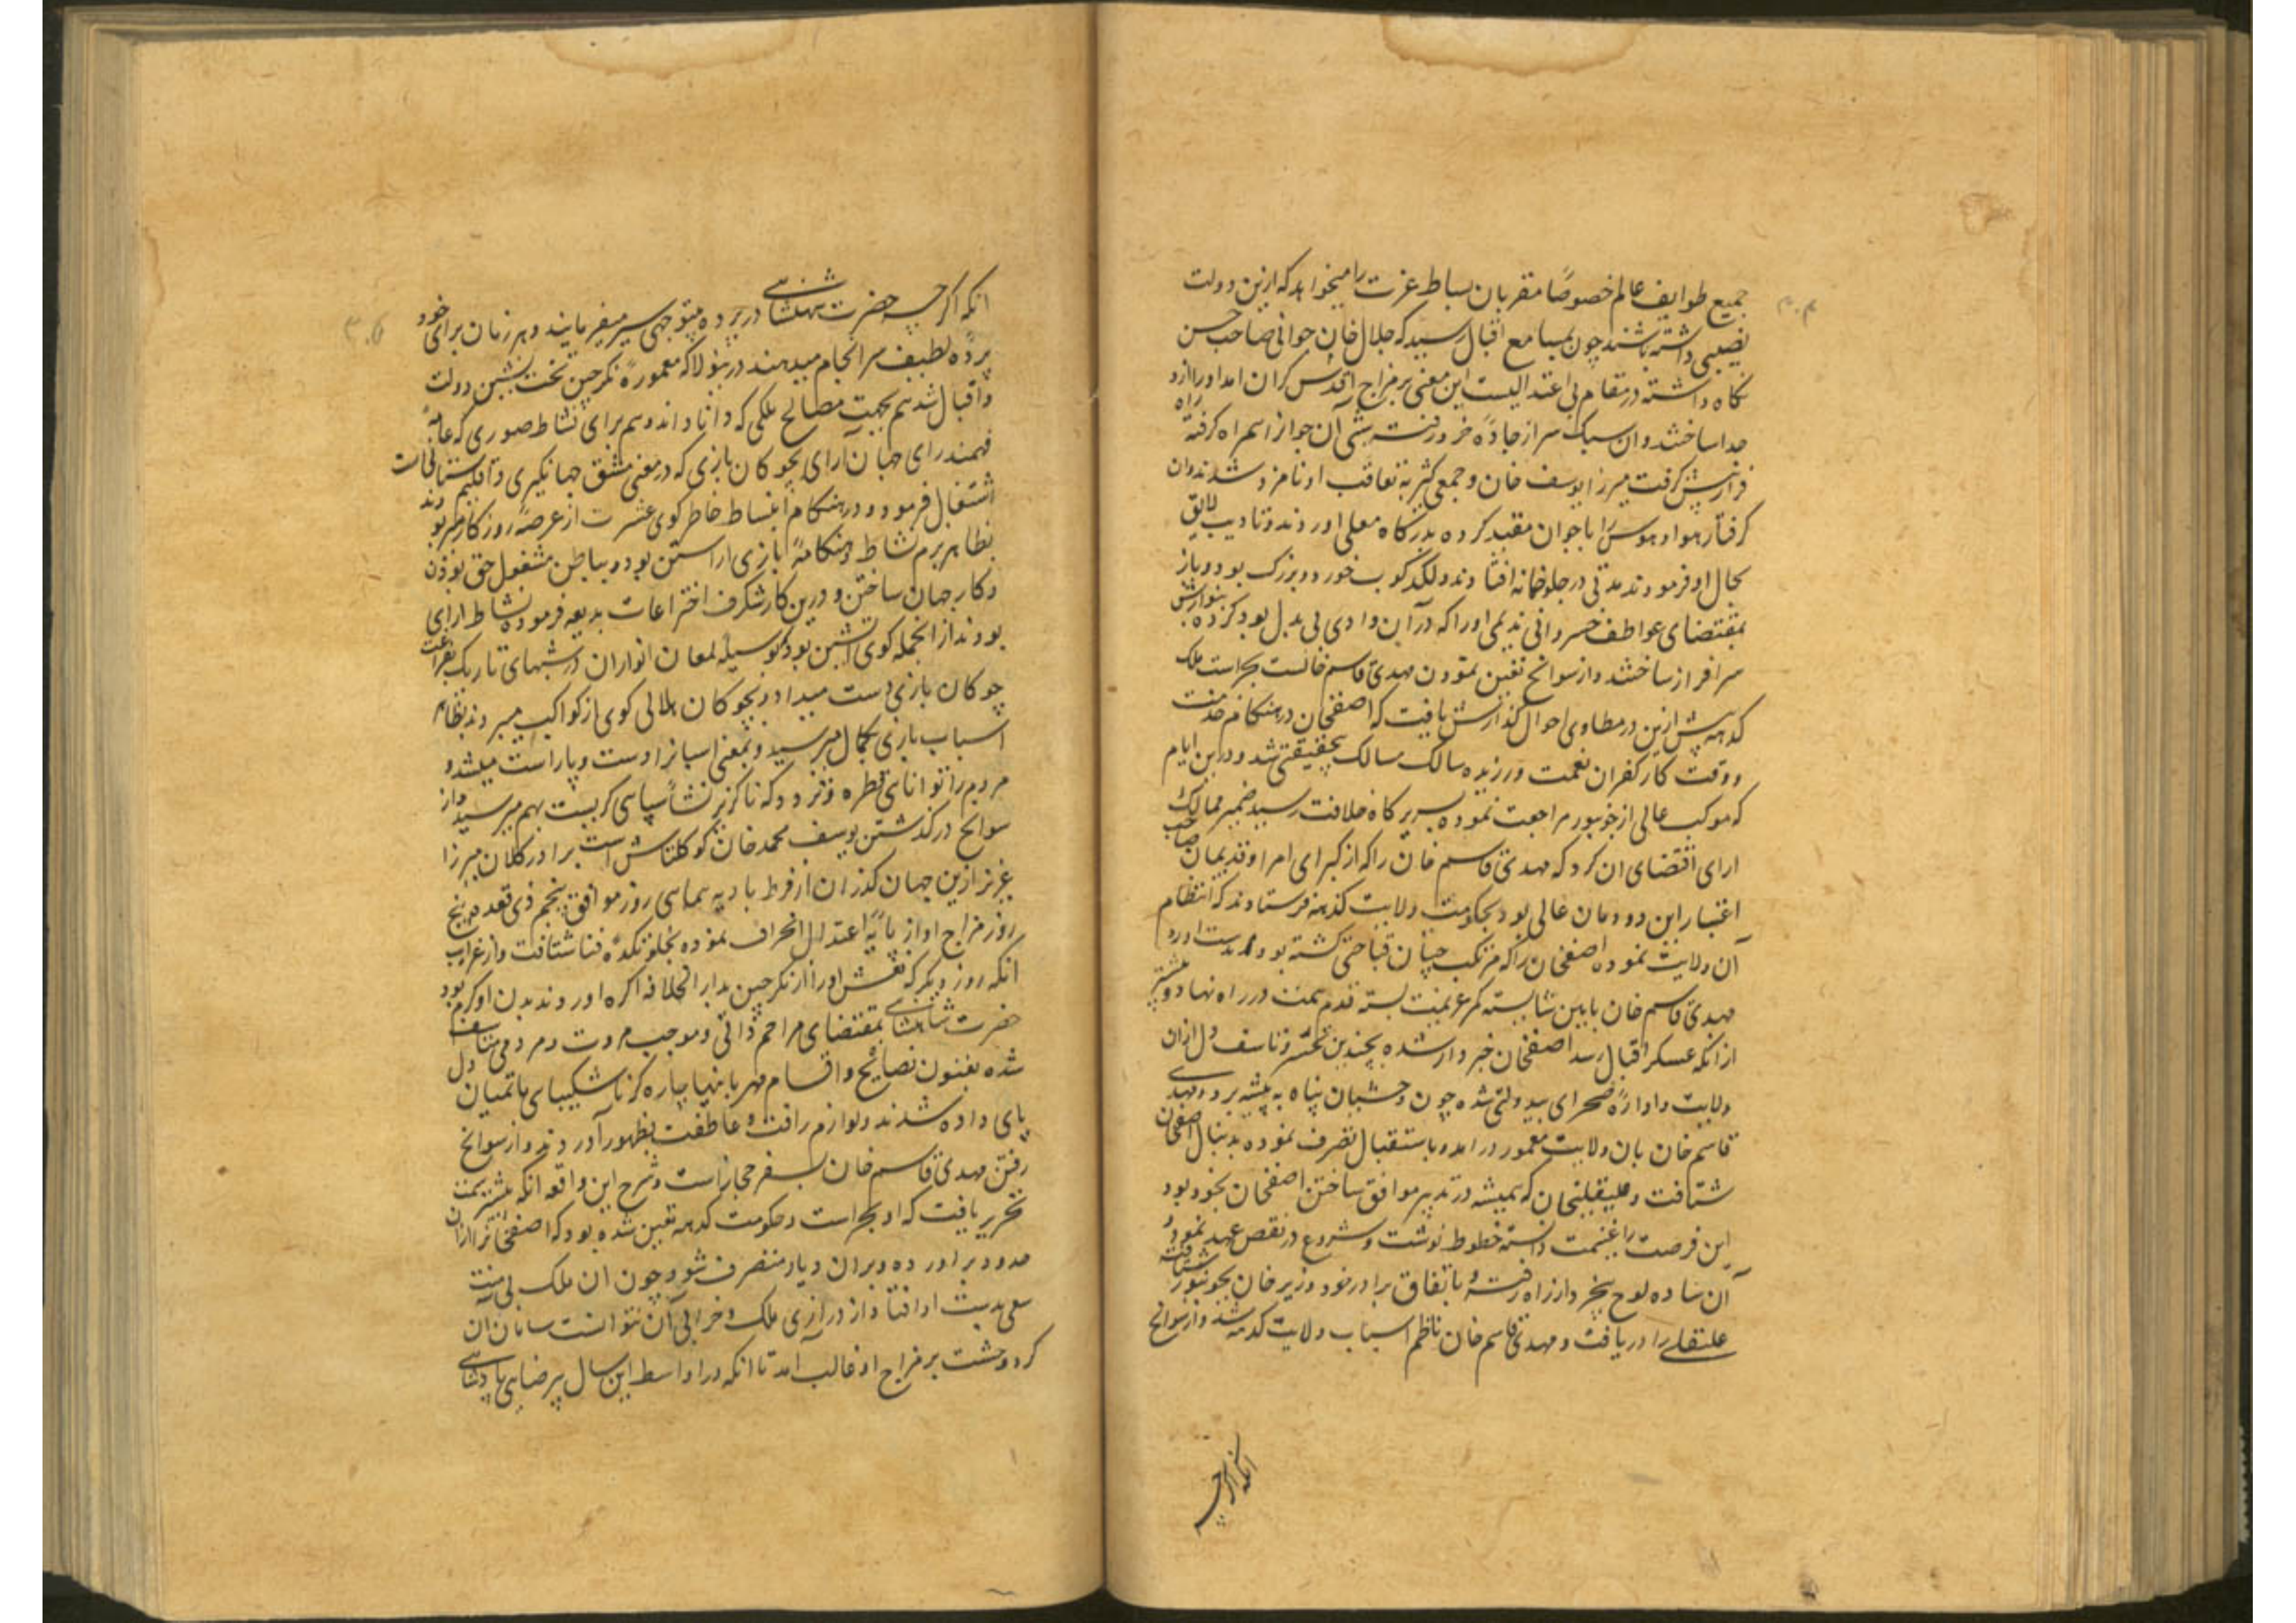 ۳۰۴
جمیع طوایف عالم خصوصاً مقربان بساط عزت را میخواهد که ازین دولت
نصیبی داشته باشند چون بمسامع اقبال رسید که جلال خان جوانی صاحب حسن
نکاه داشته در مقام بی اعتدالیست این معنی بر مزاج اقدس کران امد او را ازو
جدا ساختند وان سبک سر از جاده خرد رفته شبی آن جوانرا همراه کرفته راه
فرار پیش کرفت میرزا یوسف خان و جمعی کثیر به تعاقب او نامزد شدند وان
کرفتار هوا و هوس را با جوان مقید کرده بدرکاه معلی اوردند و تادیب لایق
بحال او فرمودند مدتی در جلوخانه افتاده لکدکوب خورد و بزرک بود و باز
بمقتضای عواطف خسروانی ندیمی او را که در آن وادی بی بدل بود کرده بنوازش
سرافراز ساختند و از سوانح تعین نمودن مهدی قاسم خانست بحراست ملک
کدهه پیش ازین در مطاوی احوال کذارش یافت که اصفخان در هنکام خدمت
و وقت کار کفران نعمت ورزیده سالک مسالک بیحقیقتی شد و درین ایام
که موکب عالی از جونپور مراجعت نموده بسریر کاه خلافت رسید ضمیر ممالک
ارای اقتضای ان کرد که مهدی قاسم خان را که از کبرای امرا و قدیمان صاحب
اعتبار این دودمان عالی بود بحکومت ولایت کدهه فرستادند که انتظام
آن ولایت نموده اصفخان را که مرتکب چنان قباحتی کشته بود بدست اورد
مهدی قاسم خان بایین شایسته کمر عزیمت بسته قدم همت در راه نهاد و پیشتر
از انکه عسکر اقبال رسد اصفخان خبردار شده بچندین تحسر و تاسف دل ازان
ولایت و اواره صحرای بیدولتی شده چون وحشیان پناه به بیشه برد و مهدی
قاسم خان بان ولایت معمور درامد و باستقبال تصرف نموده بدنبال اصفخان
شتافت و علیقلیخان که همیشه در تدبیر موافق ساختن اصفخان بخود بود
این فرصت را غنیمت دانسته خطوط نوشت و شروع در نقص عهد نمود و
آن ساده لوح بیخرد از راه رفته و باتفاق برادر خود وزیر خان بجونپور شتافته
علیقلی را دریافت و مهدی قاسم خان ناظم اسباب ولایت کدهه شد و از سوانح
انکه اکرچه
۳۰۵
انکه اکرچه حضرت شهنشاهی در پرده بیتوجهی سیر میفرمایند و هر زمان برای خود
پرده لطیف سرانجام میدهند درینولا که معموره نکرچین تخت نشین دولت
و اقبال شد هم بجهت مصالح ملکی که دانا داند و هم برای نشاط صوری که عامه
فهمند رای جهان آرای بچوکان بازی که در معنی مشق جهانکیری و اقلیم ستانی است
اشتغال فرمود و در هنکام انبساط خاطر کوی عشرت از عرصه روزکار میربودند
بظاهر بزم نشاط و هنکامه بازی اراستن بود و بباطن مشغول حق بودن
و کار جهان ساختن و درین کار شکرف اختراعات بدیعه فرموده نشاط ارای
بودند از انجمله کوی اتشین بود که بوسیله لمعان انوار ان در شبهای تاریک بفراغت
چوکان بازی دست میداد و بچوکان هلالی کوی از کواکب میبردند بظاهر
اسباب بازی بکمال میرسید و بمعنی اسبانرا دست و پا راست میشد و
مردم را توانای قطره و تردد که ناکزیر نشاء سپاهی کریست بهم میرسید و از
سوانح در کذشتن یوسف محمد خان کوکلتاش است برادر کلان میرزا
عزیز ازین جهان کذران از فرط باده پیمای روز موافق پنجم ذی قعده پنج
روز مزاج او از پایه اعتدال انحراف نموده بخلوتکده فنا شتافت و از غرایب
انکه روز دیکر که نعش او را از نکرچین بدار الخلافه اکره اوردند بدن او کرم بود
حضرت شاهنشاهی بمقتضای مراحم ذاتی و موجب مروت و مردمی متاسف
شده بفنون نصایح و اقسام مهربانیها بیاره کرنا شکیبای ماتمیان دل
پای داده شدند و لوازم رافت و عاطفت بظهور آوردند و از سوانح
رفتن مهدی قاسم خان بسفر حجاز است و شرح این واقعه انکه پیشتر سمت
تحریر یافت که او بحراست و حکومت کدهه تعین شده بود که اصفخانرا ازان
حدود براورده و بران دیار متصرف شود چون ان ملک بی منت
سعی بدست او افتاد از درازی ملک و خرابی آن نتوانست سامان ان
کرد وحشت بر مزاج او غالب آمد تا انکه در اواسط این سال بیرضای پادشاهی